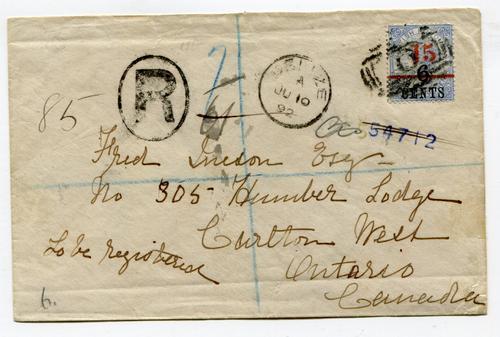 15
6
CENTS
BELIZE
A
JU 10
92
R
85
No 54712
Fred Imeson Esq
No 305 Humber Lodge
Carlton West
To be registered
Ontario
Canada
6.